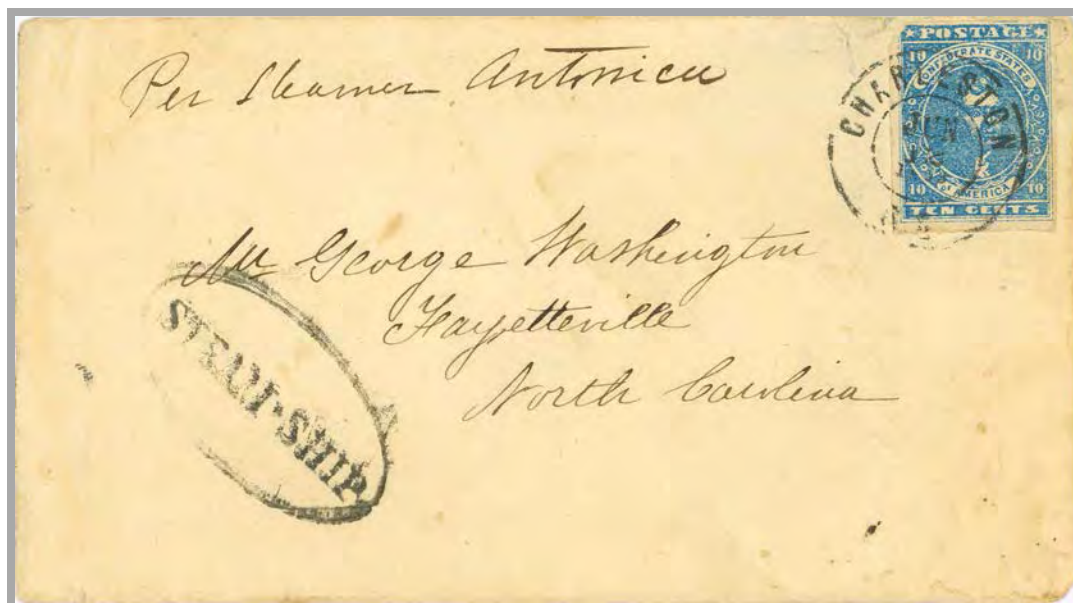 Per Steamer Antonica
★POSTAGE★
10 10
CONFEDERATE STATES
OF AMERICA
10 10
TEN CENTS
CHARLESTON
JUN
Mr George Washington
Fayetteville
North Carolina
STEAM-SHIP